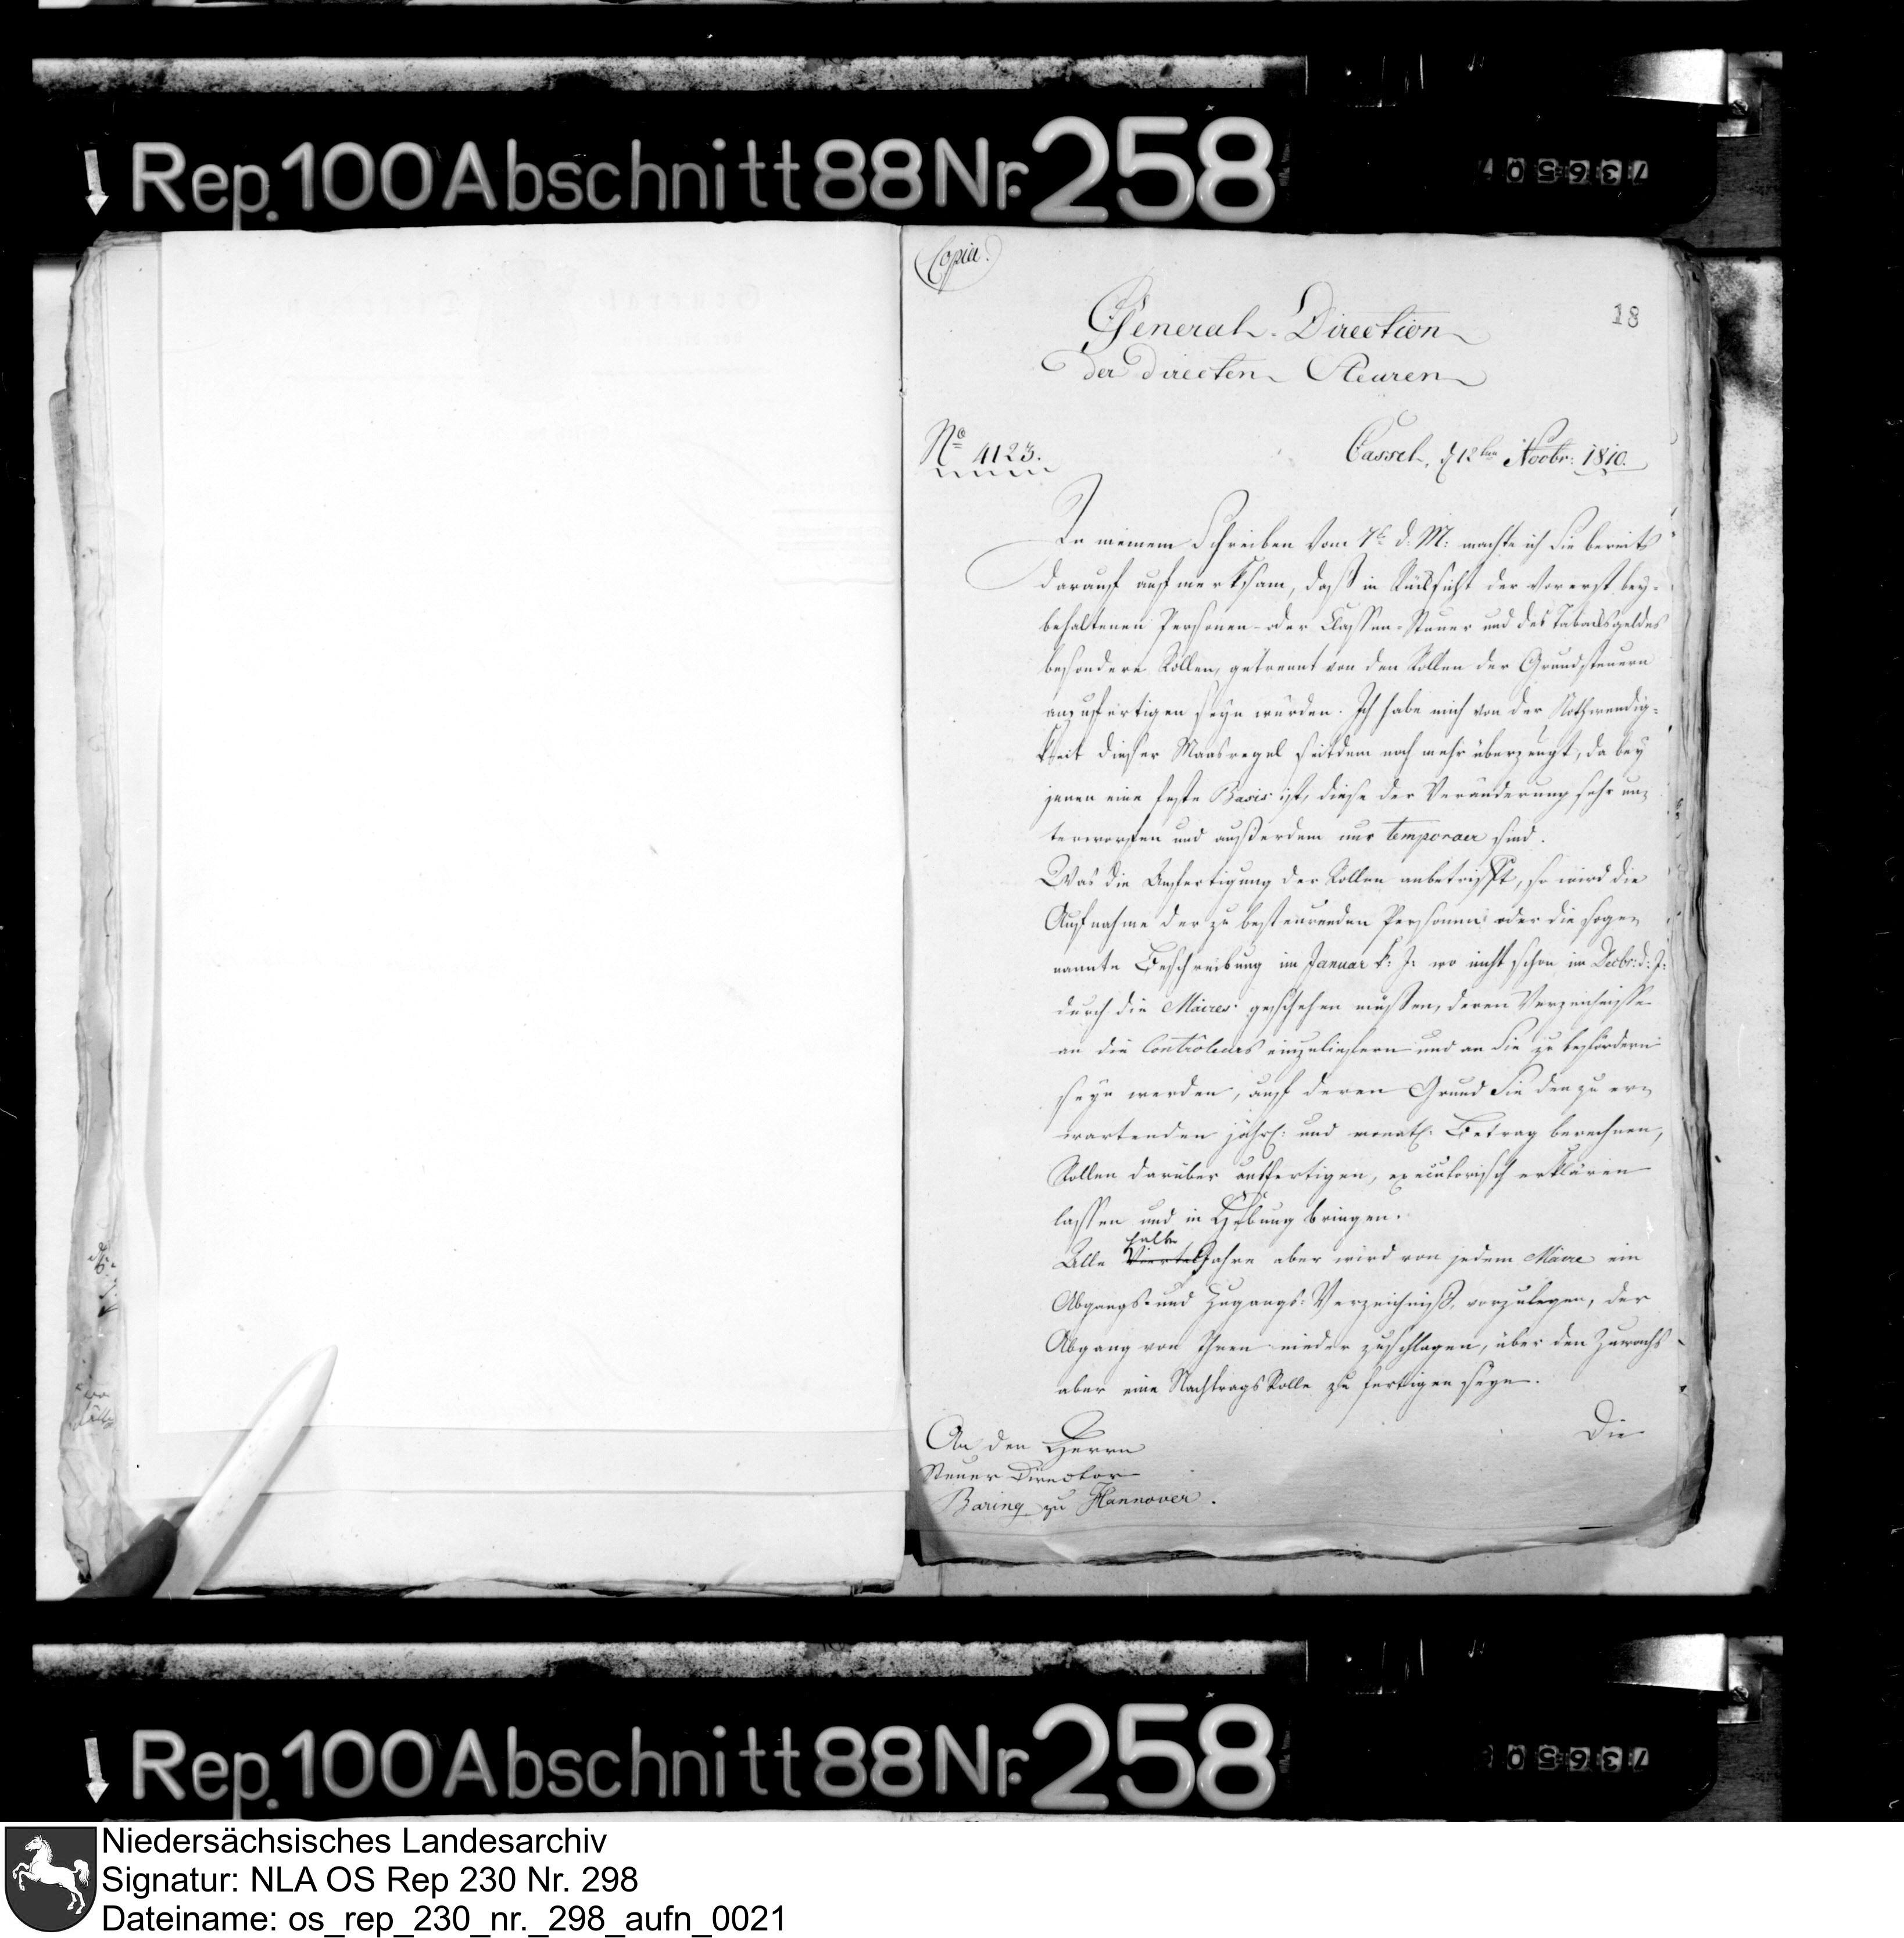 Rep. 100 Abschnitt 88 Nr. 258
736507
Copia.
18
General-Direction
der directen Steuren
No 4123.
Cassel, d 12ten Novbr: 1810.
In meinem Schreiben vom 7t d. M: machte ich Sie bereits
darauf aufmerksam, daß in Rücksicht der vorerst bey-
behaltenen Personen- oder Classen-Steuer und des Tabacksgeldes
besondere Rollen, getrennt von den Rollen der Grundsteuern
anzufertigen seyn würden. Ich habe mich von der Nothwendig-
keit dieser Maasregel seitdem noch mehr überzeugt, da bey
jenen eine feste Basis ist, diese der Veränderung sehr un-
terworfen und außerdem nur temporaer sind.
Was die Anfertigung der Rollen anbetrifft, so wird die
Aufnahme der zu besteurenden Personen oder die soge-
nannte Beschreibung im Januar k: J: wo nicht schon im Decbr: d: J:
durch die Maires geschehen müssen, deren Verzeichnisse
an die Contrôleurs einzuliefern und an Sie zu befördern
seyn werden, auf deren Grund Sie den zu er-
wartenden jährl: und monatl: Betrag berechnen,
Rollen darüber ausfertigen, executorisch erklären
lassen und in Hebung bringen.
halbe
Alle Viertel Jahre aber wird von jedem Maire ein
Abgangs- und Zugangs-Verzeichniß vorzulegen, der
Abgang von Ihnen nieder zuschlagen, über den Zuwachs
aber eine Nachtrags Rolle zu fertigen seyn.
Die
An den Herrn
Steuer Director
Baring zu Hannover.
Rep. 100 Abschnitt 88 Nr. 258
736507
Niedersächsisches Landesarchiv
Signatur: NLA OS Rep 230 Nr. 298
Dateiname: os_rep_230_nr._298_aufn_0021